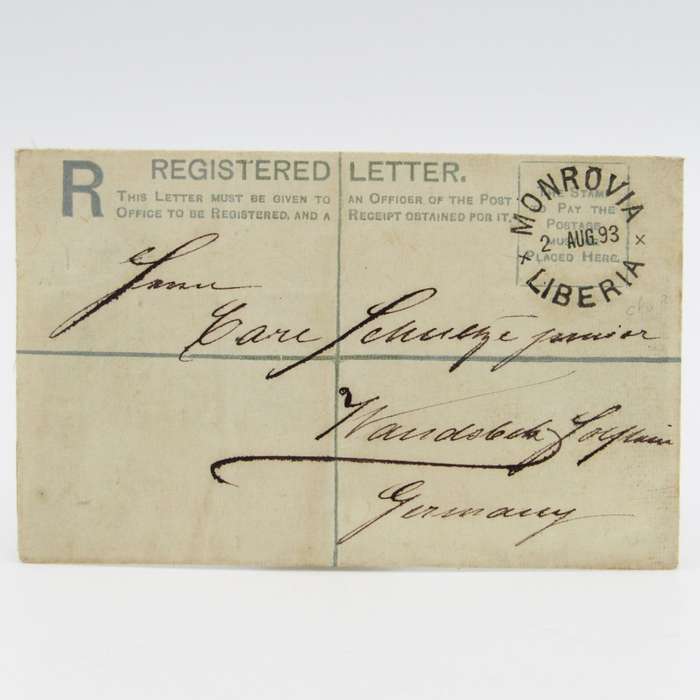 R REGISTERED LETTER.
THIS LETTER MUST BE GIVEN TO AN OFFICER OF THE POST
OFFICE TO BE REGISTERED, AND A RECEIPT OBTAINED FOR IT.
THE STAMP
TO PAY THE
POSTAGE
MUST BE
PLACED HERE.
MONROVIA
2 AUG. 93
× LIBERIA ×
Herrn
Carl Schultze junior
Wandsbek Holstein
Germany